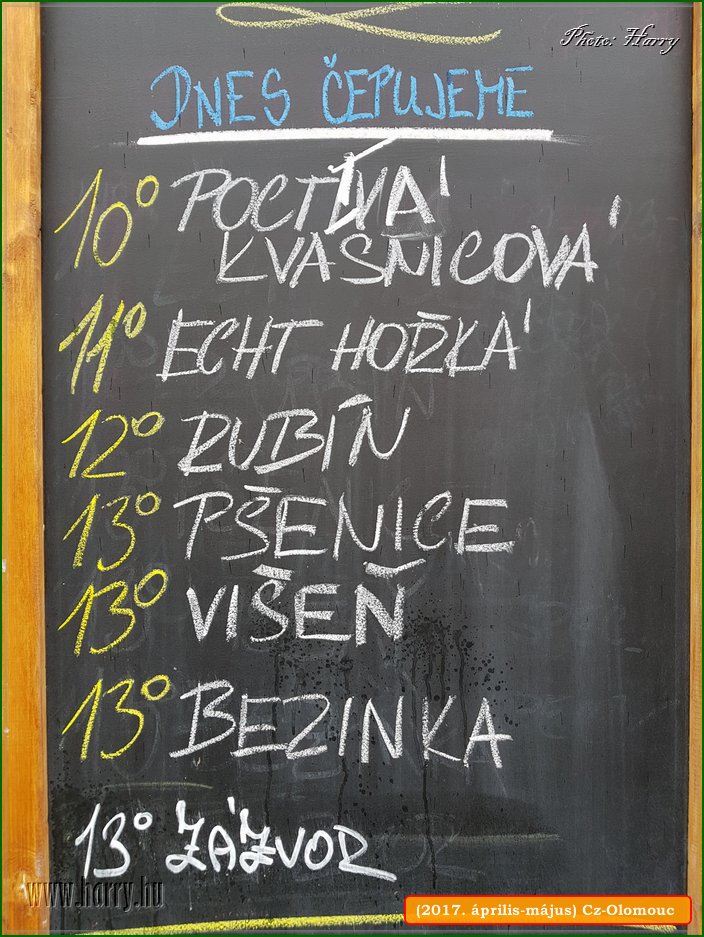 Photo: Harry
DNES ČEPUJEME
10° POCTIVÁ
KVASNICOVÁ
11° ECHT HOŘKÁ
12° RUBÍN
13° PŠENICE
13° VIŠEŇ
13° BEZINKA
13° ZÁZVOR
www.harry.hu
(2017. április-május) Cz-Olomouc